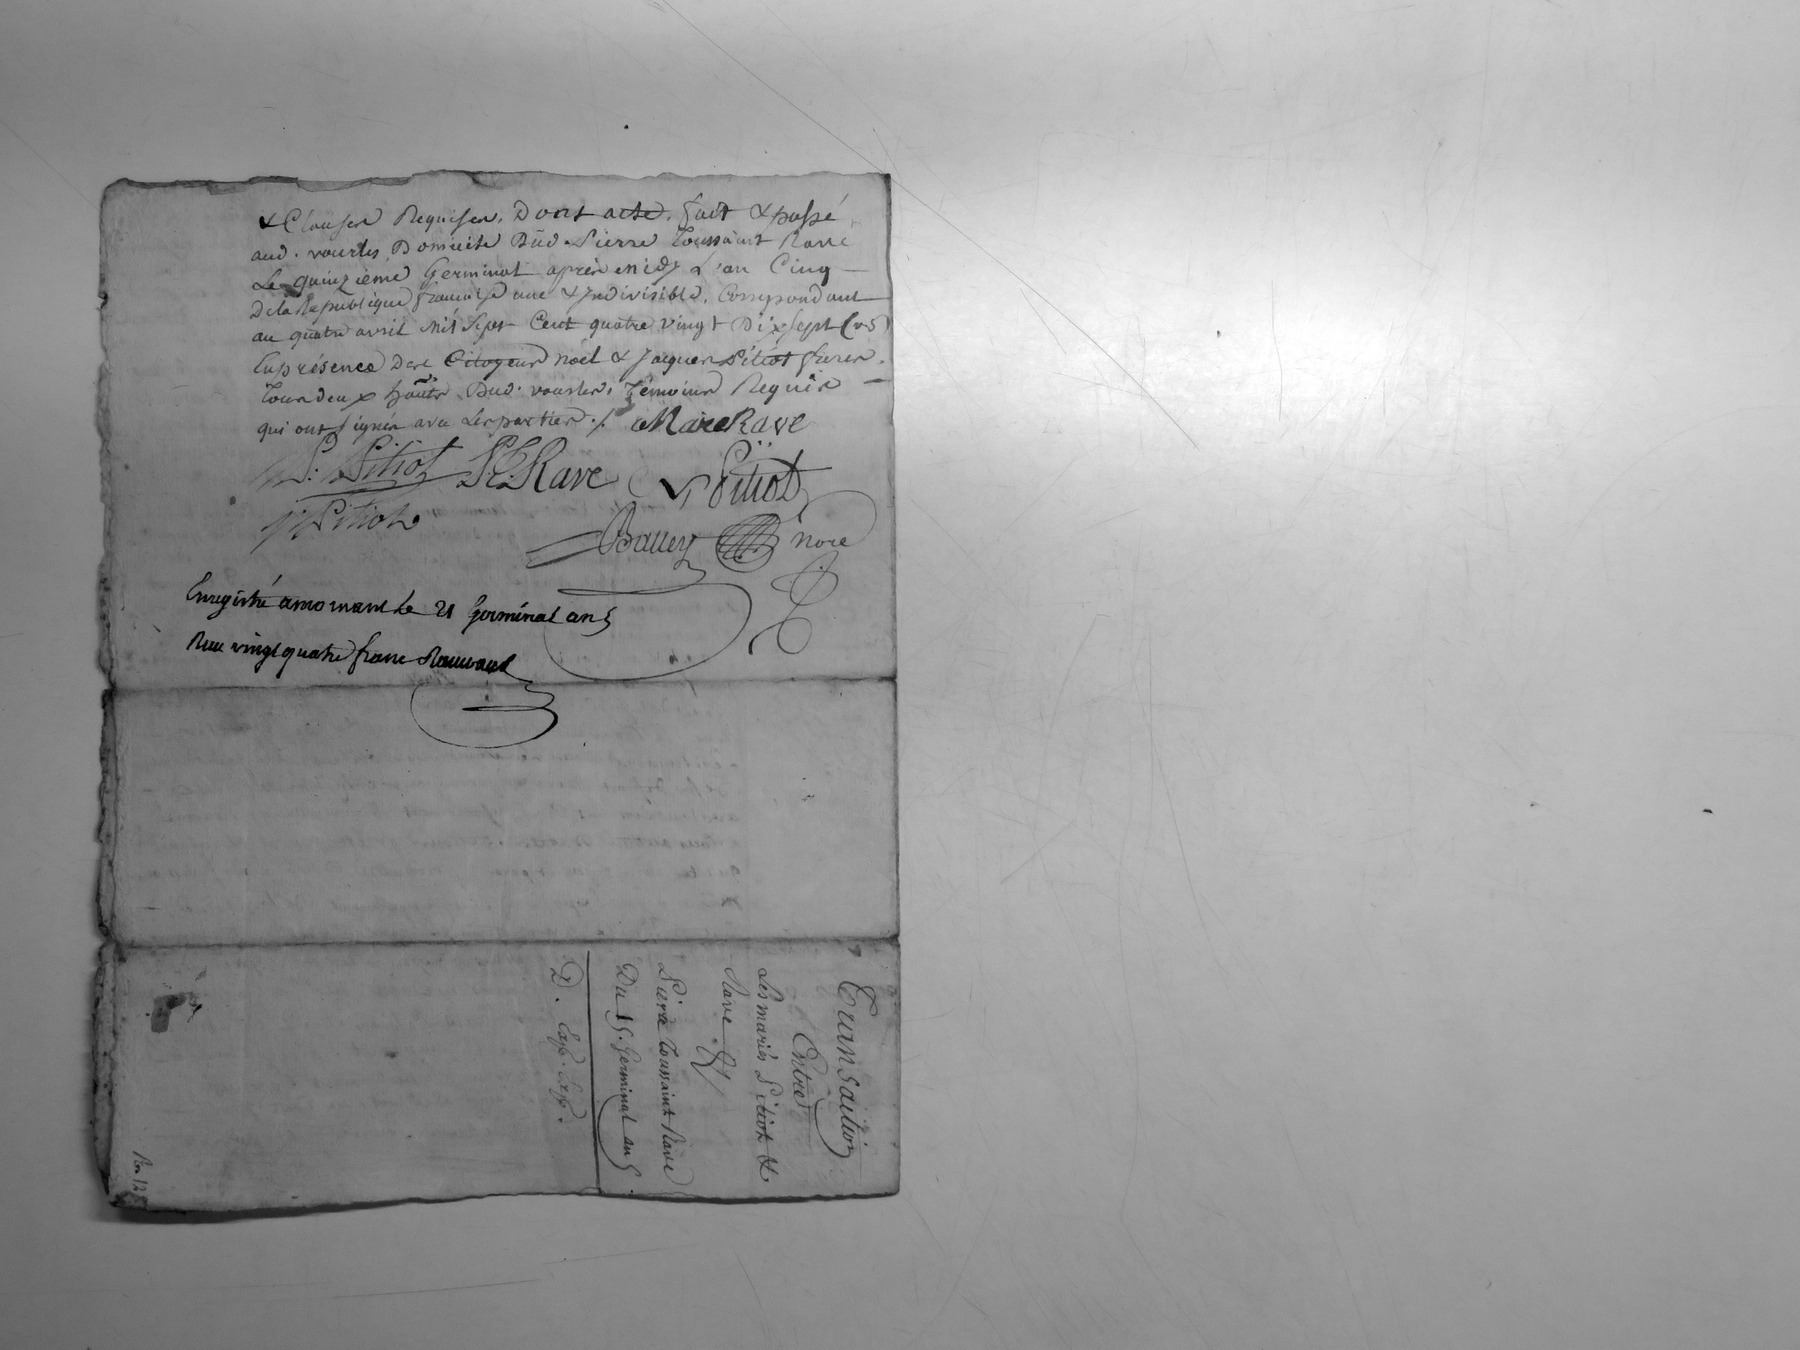 & Clauses Requises. Dont acte. fait & passé
aud. vourles, Domicile Dud. Pierre Toussaint Rave
Le quinzieme Germinal après midy L'an Cinq
De la Republique francaise une & Indivisible. Correspondant
au quatre avril Mil Sept Cent quatre vingt Dix Sept (vs)
En présence Des Citoyens Noël & Jacques Pitiot freres.
Tous deux hants Dud. vourles, Témoins Requis
qui ont signés avec Les parties ./. Marie Rave
P. Pitiot P.T. Rave N Pitiot
J Pitiot
Balley nore
Enregistré a mornant le 21 Germinal an 5
Recu vingt quatre franc
Transaction
Entre
Les mariés Pitiot &
Rave &
Pierre Toussaint Rave
Du 15. Germinal an 5.
D. Exp. Exp.